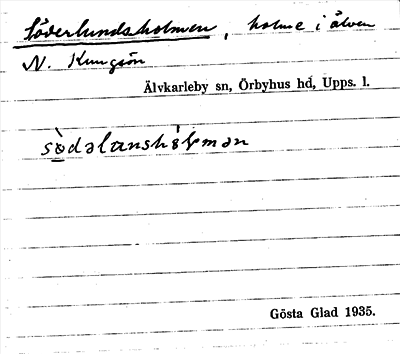 Söderlundsholmen, holme i älven
N. Kungsön
Älvkarleby sn, Örbyhus hd, Upps. l.
Gösta Glad 1935.